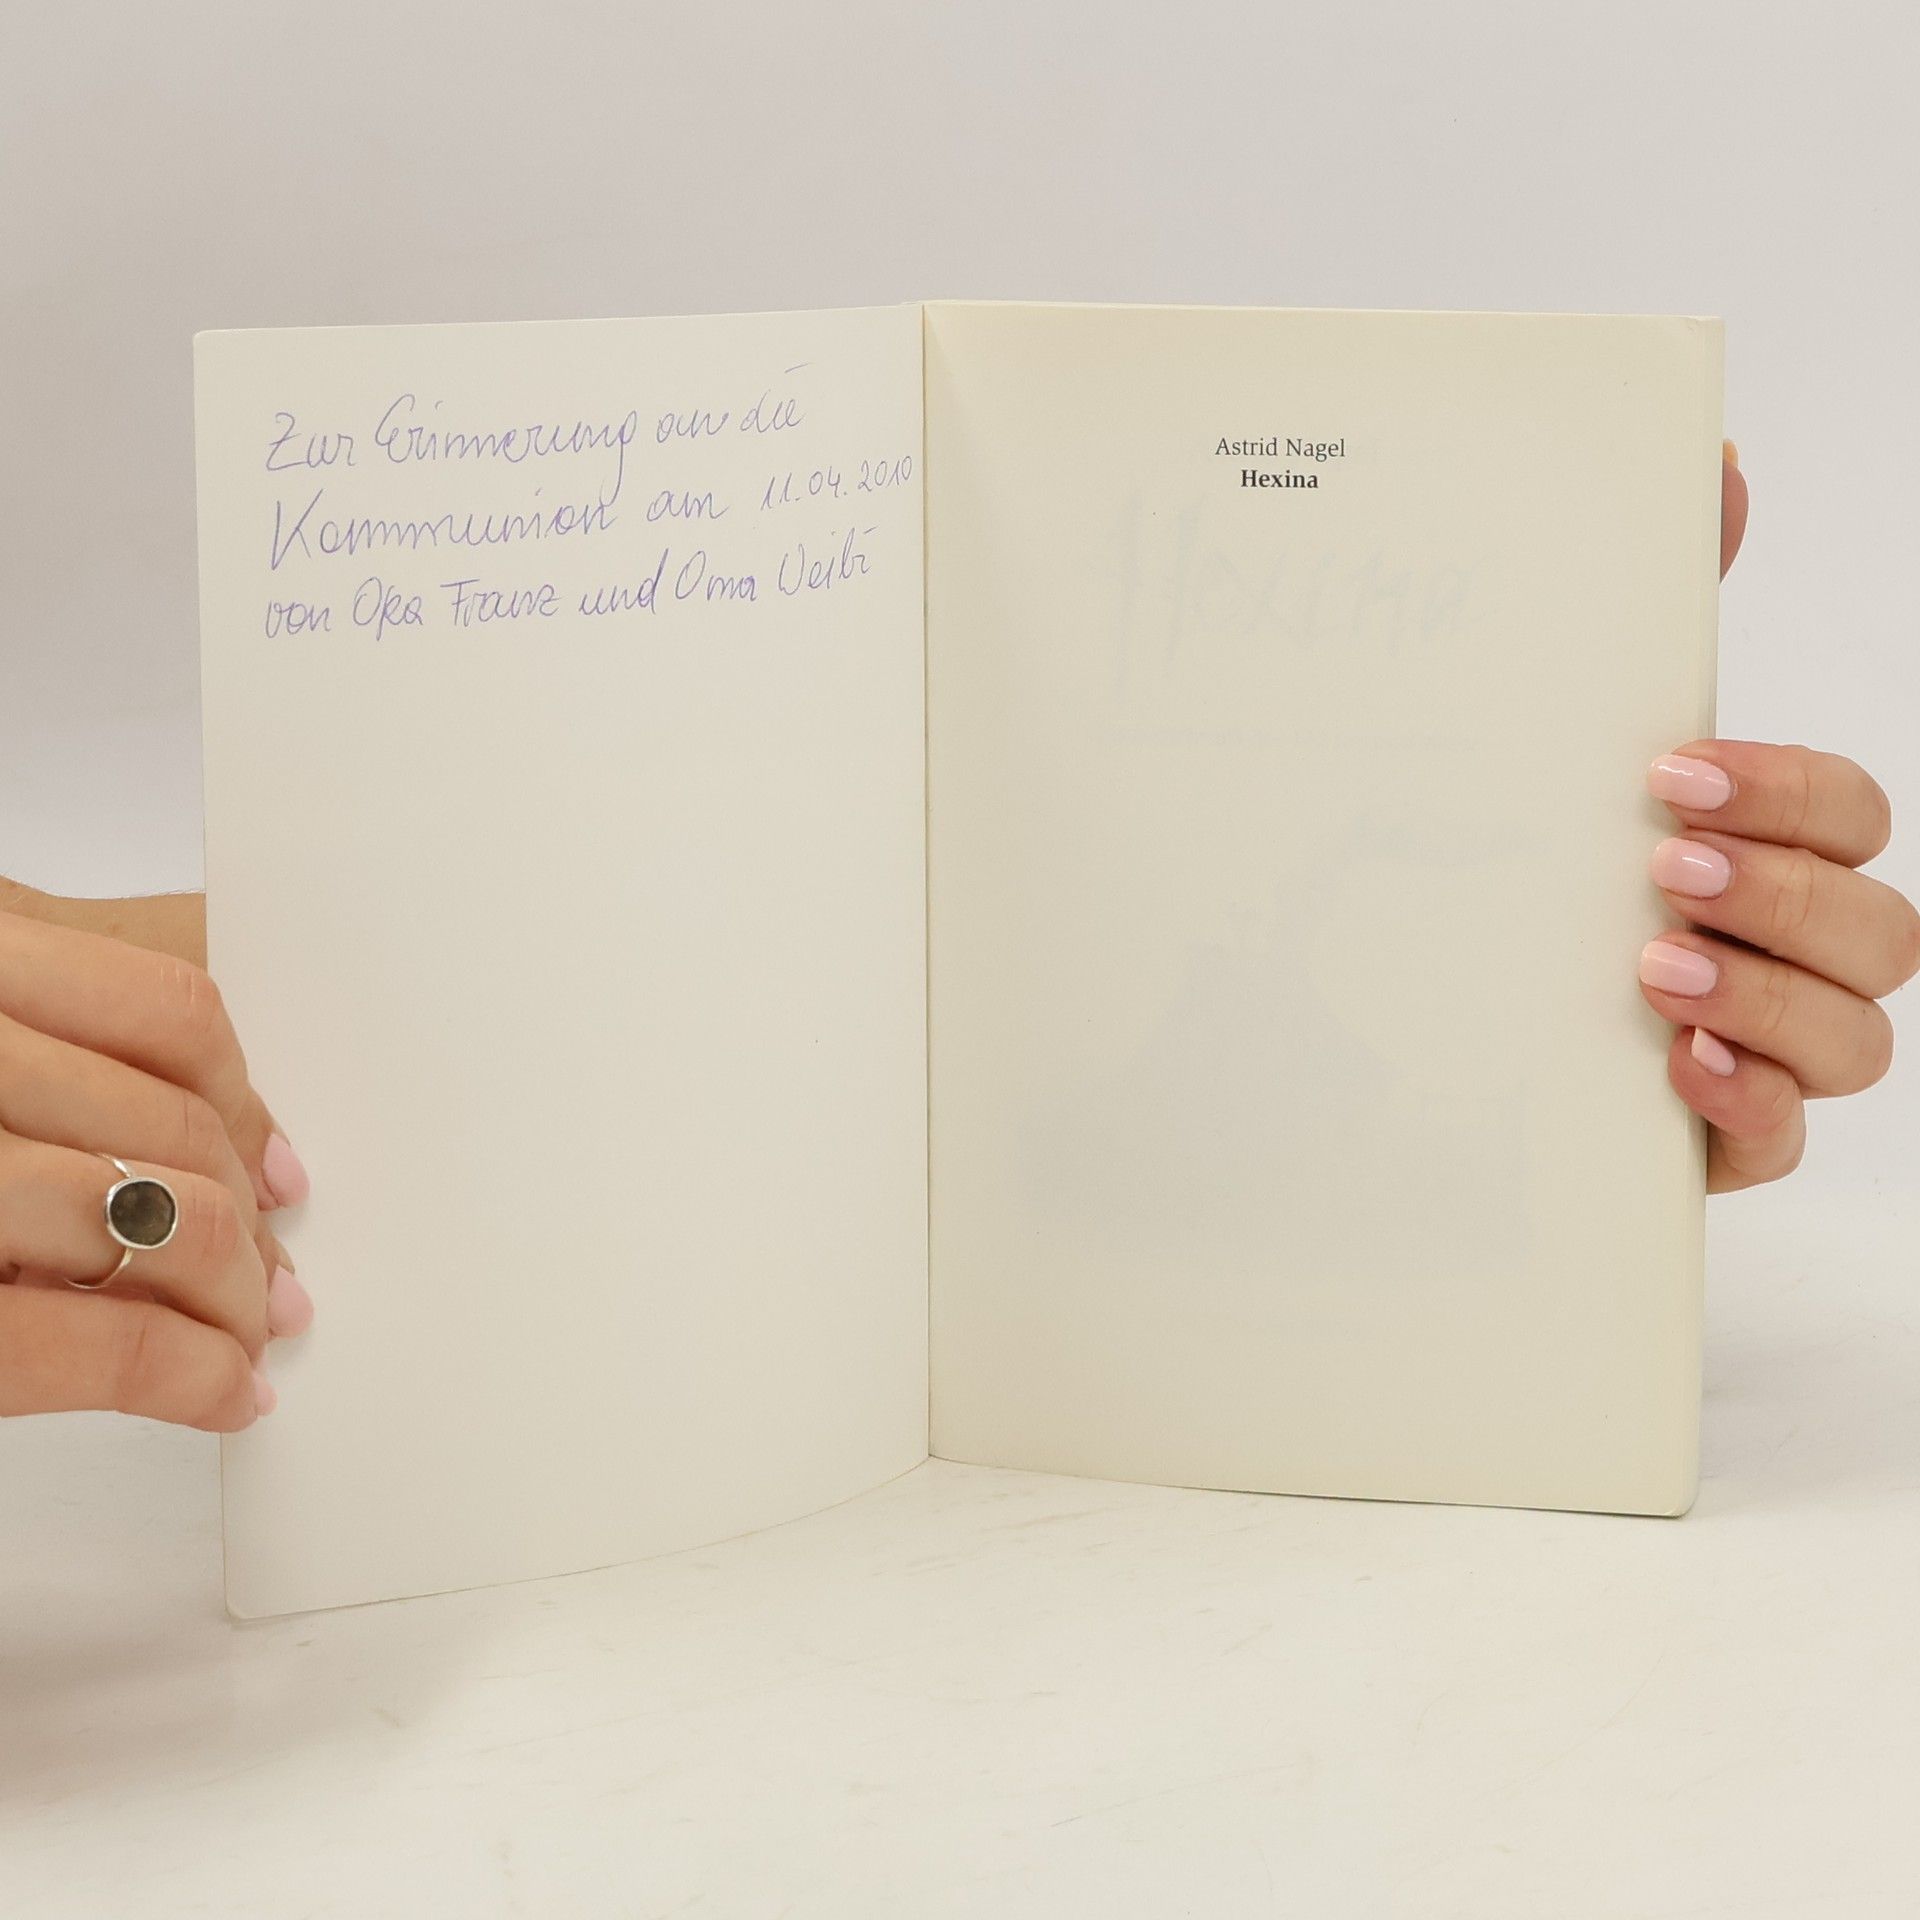 Zur Erinnerung an die
Kommunion am 11.04.2010
von Opa Franz und Oma Weibi
Astrid Nagel
Hexina